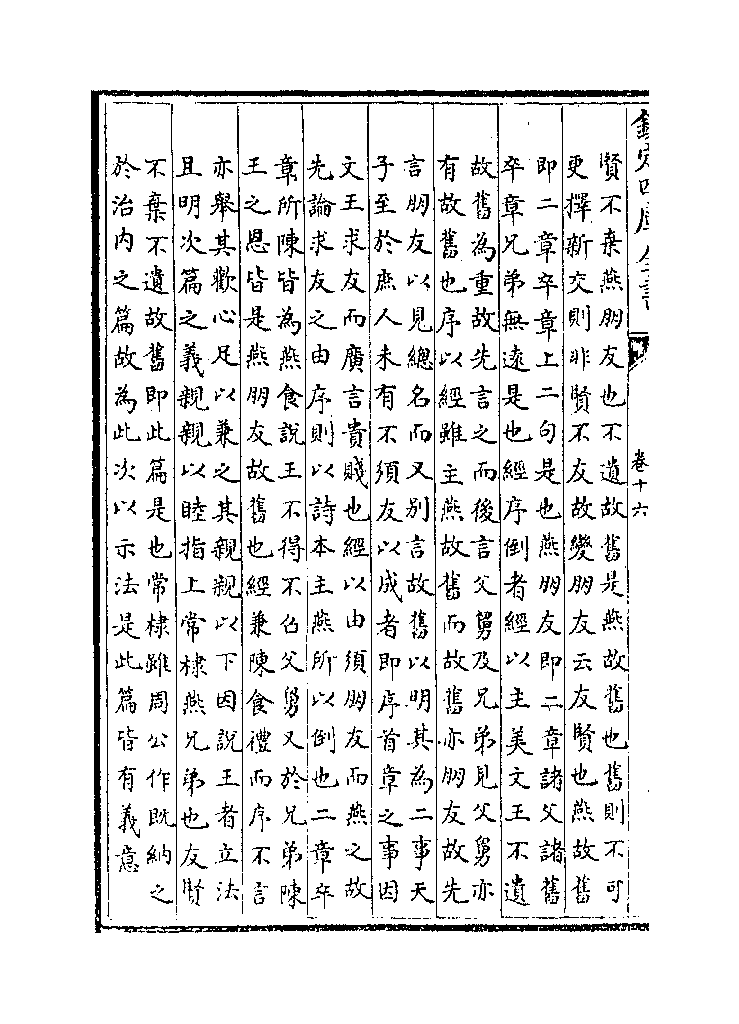 欽定四庫全書
卷十六
賢不棄燕朋友也不遺故舊是燕故舊也舊則不可
更擇新交則非賢不友故變朋友云友賢也燕故舊
即二章卒章上二句是也燕朋友即二章諸父諸舊
卒章兄弟無遠是也經序倒者經以主美文王不遺
故舊為重故先言之而後言父舅及兄弟見父舅亦
有故舊也序以經雖主燕故舊而故舊亦朋友故先
言朋友以見總名而又别言故舊以明其為二事天
子至於庶人未有不須友以成者即序首章之事因
文王求友而廣言貴賤也經以由須朋友而燕之故
先論求友之由序則以詩本主燕所以倒也二章卒
章所陳皆為燕食說王不得不召父舅又於兄弟陳
王之恩皆是燕朋友故舊也經兼陳食禮而序不言
亦舉其歡心足以兼之其親親以下因說王者立法
且明次篇之義親親以睦指上常棣燕兄弟也友賢
不棄不遺故舊即此篇是也常棣雖周公作既納之
於治内之篇故為此次以示法是此篇皆有義意